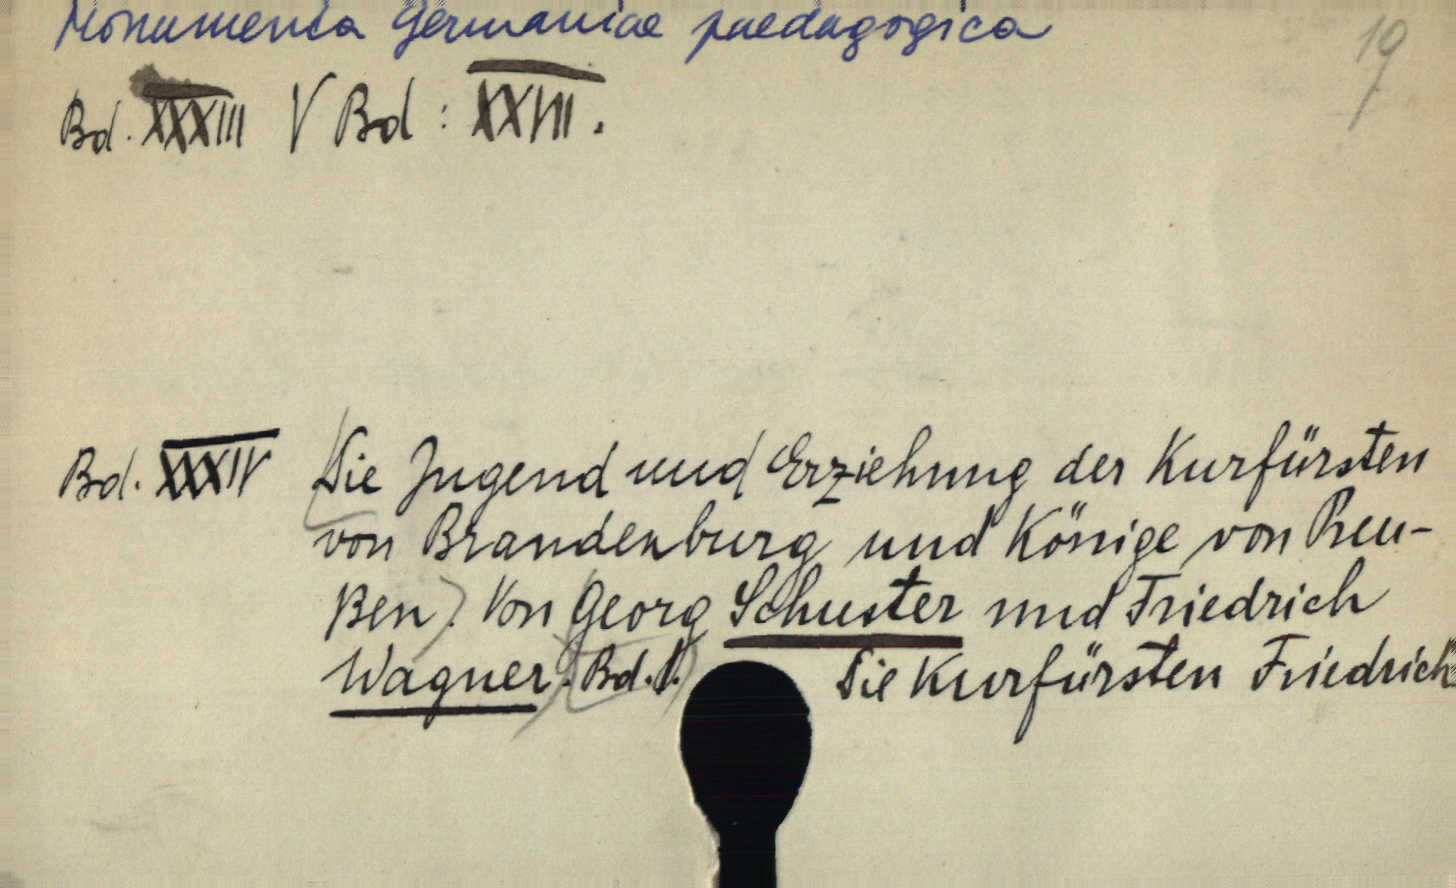 Monumenta Germaniae paedagogica
19
Bd. XXXIII V Bd : XXVII.
Bd. XXXIV Die Jugend und Erziehung der Kurfürsten
von Brandenburg und Könige von Preu-
ßen. Von Georg Schuster und Friedrich
Wagner. Bd. 1. Die Kurfürsten Friedrich